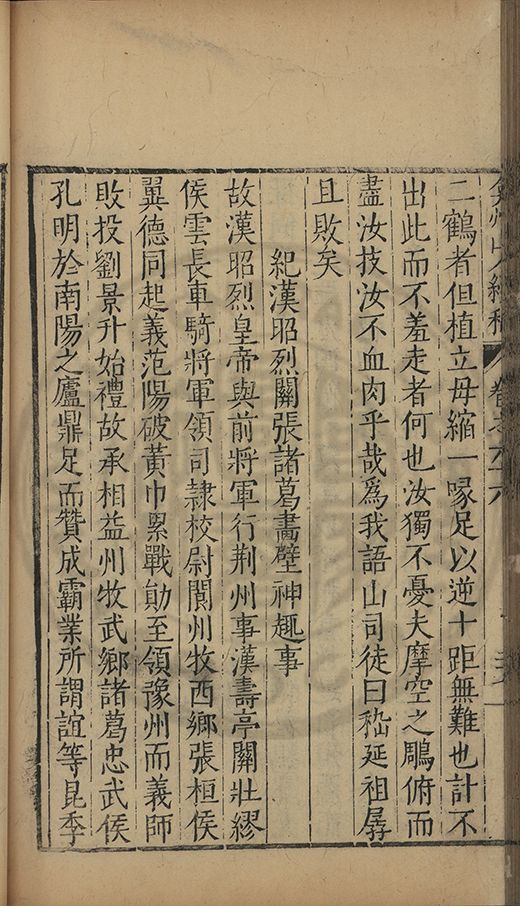 弇州山人續稿 卷之六十六
二鶴者但植立毋縮一喙足以逆十距無難也計不
出此而不羞走者何也汝獨不憂夫摩空之鵰俯而
盡汝技汝不血肉乎哉爲我語山司徒曰嵇延祖孱
且敗矣
紀漢昭烈關張諸葛畵壁神趣事
故漢昭烈皇帝與前將軍行荆州事漢壽亭關壯繆
侯雲長車騎將軍領司隸校尉閬州牧西鄉張桓侯
翼德同起義范陽破黃巾累戰勛至領豫州而義師
敗投劉景升始禮故承相益州牧武鄉諸葛忠武侯
孔明於南陽之廬鼎足而贊成霸業所謂誼等昆季